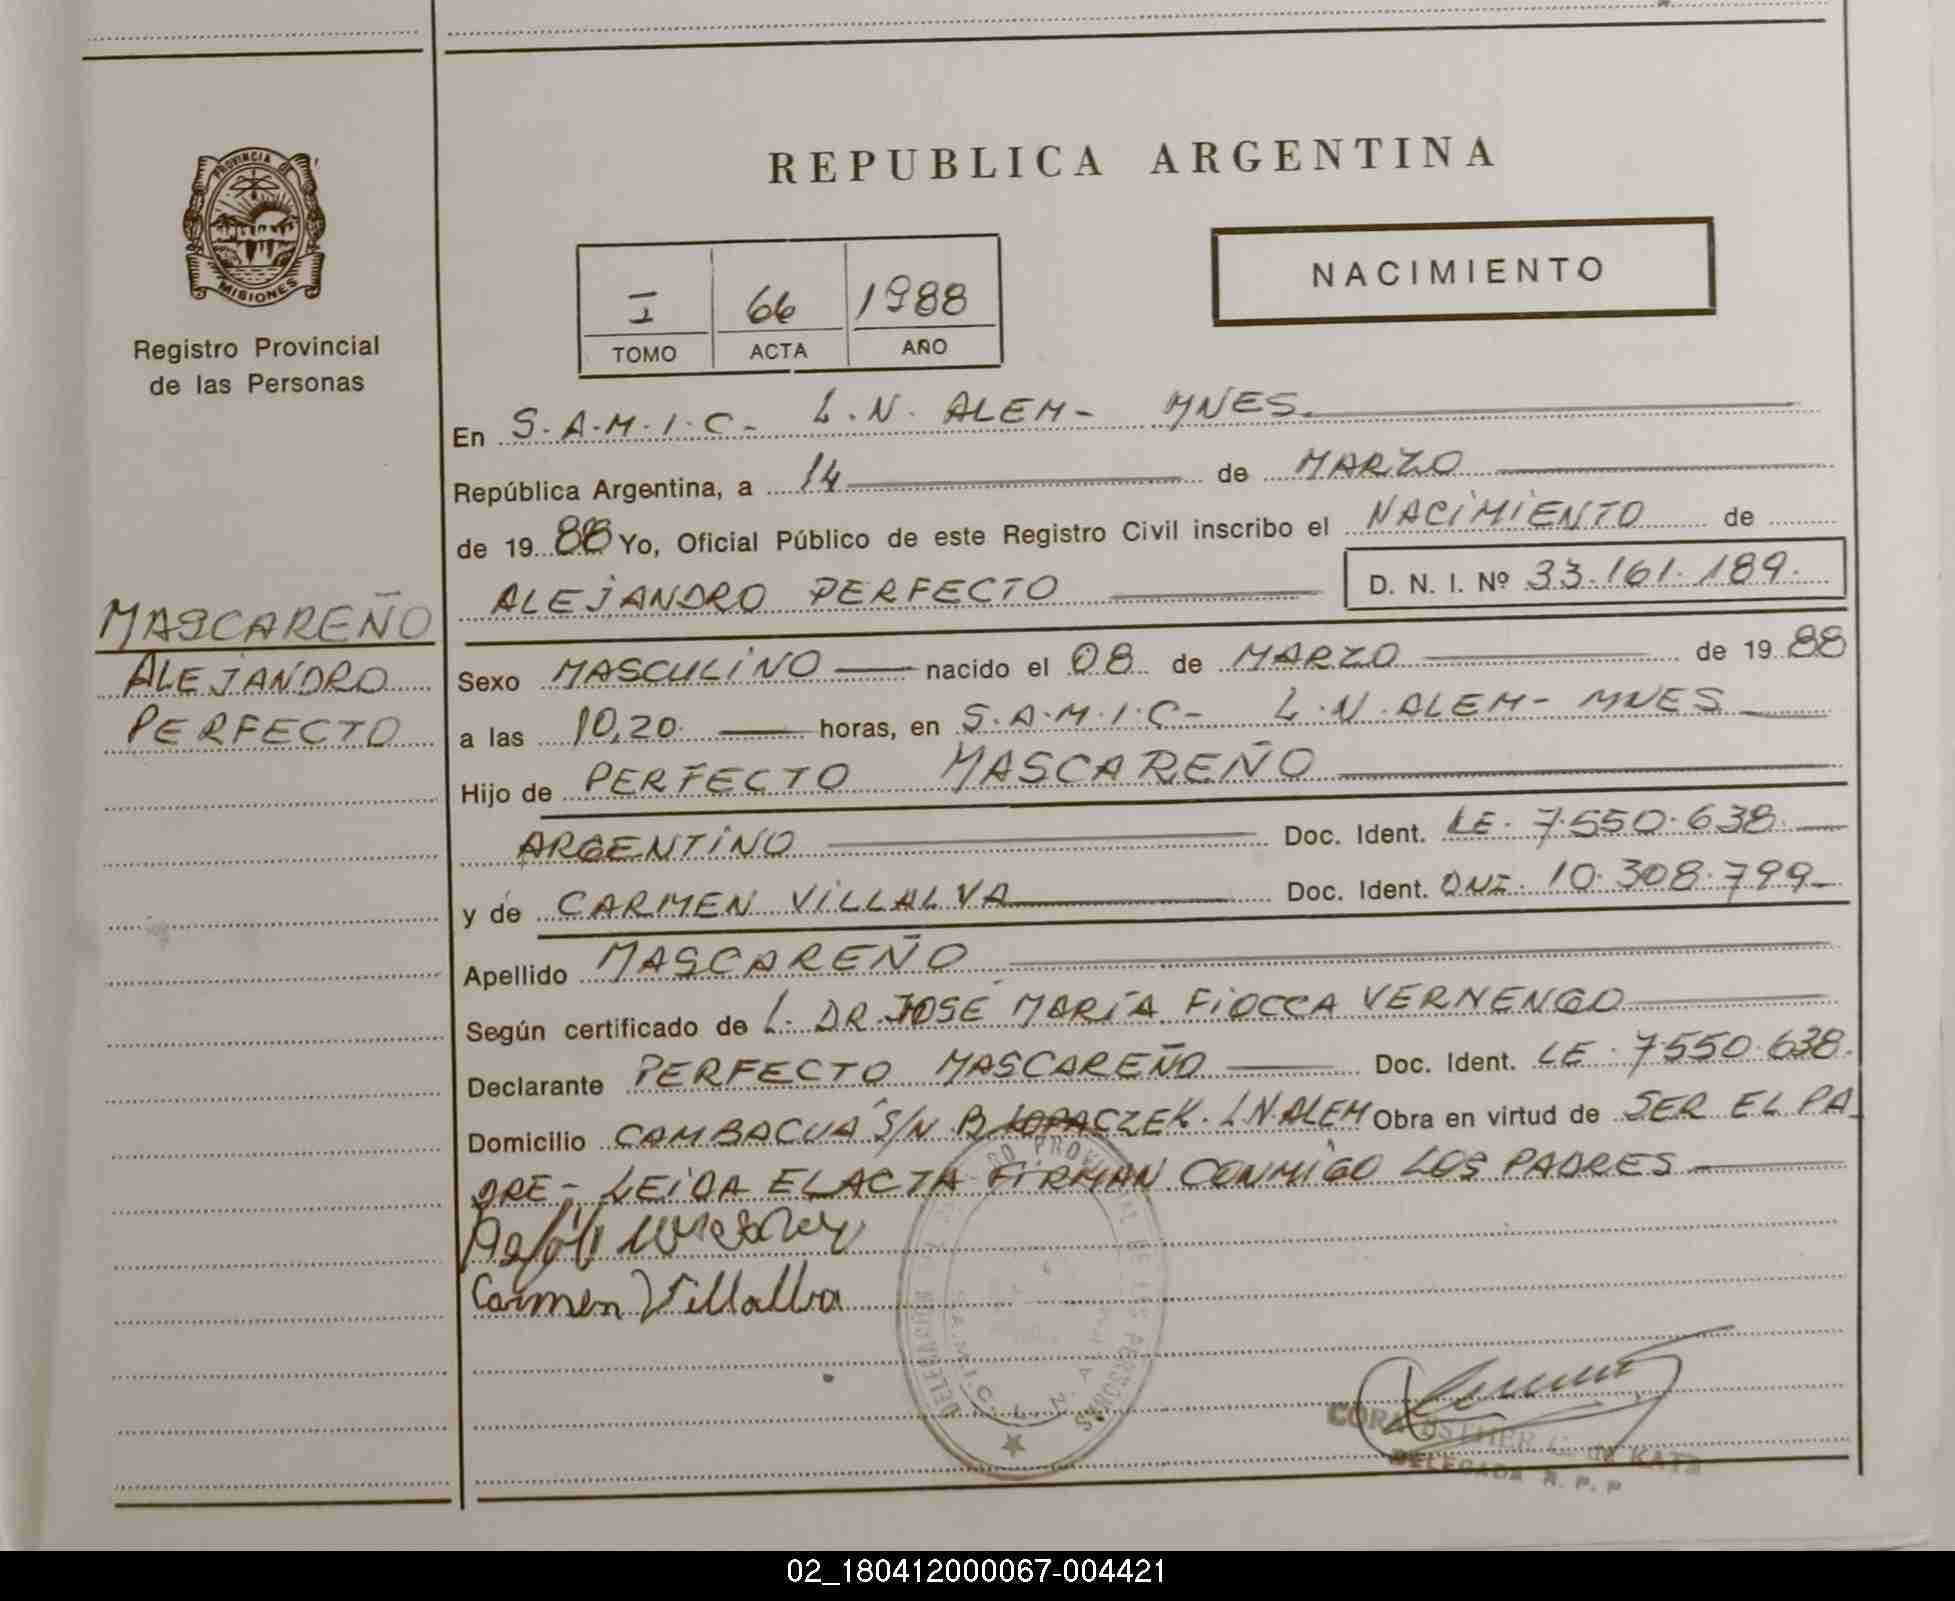 REPUBLICA ARGENTINA
PROVINCIA DE
MISIONES
Registro Provincial
de las Personas
NACIMIENTO
I 66 1988
TOMO ACTA AÑO
MASCAREÑO
ALEJANDRO
PERFECTO
En S.A.M.I.C- L.N. ALEM- MNES.
República Argentina, a 14 de MARZO
de 19 88 Yo, Oficial Público de este Registro Civil inscribo el NACIMIENTO de
ALEJANDRO PERFECTO D. N. I. Nº 33.161.189.
Sexo MASCULINO nacido el 08 de MARZO de 19 88
a las 10,20 horas, en S.A.M.I.C- L.N. ALEM- MNES
Hijo de PERFECTO MASCAREÑO
ARGENTINO Doc. Ident. LE. 7.550.638.
y de CARMEN VILLALVA Doc. Ident. DNI. 10.308.799-
Apellido MASCAREÑO
Según certificado de L. DR. JOSE MARÍA FIOCCA VERNENGO
Declarante PERFECTO MASCAREÑO Doc. Ident. LE. 7550.638.
Domicilio CAMBACUA S/N B. KOPACZEK. L N ALEM Obra en virtud de SER EL PA
DRE- LEIDA EL ACTA FIRMAN CONMIGO LOS PADRES
Carmen Villalba
PROVINCIAL DE LAS PERSONAS
S.A.M.I.C. L. N.
CORA ESTHER C. de KATZ
DELEGADA R. P. P
02_180412000067-004421